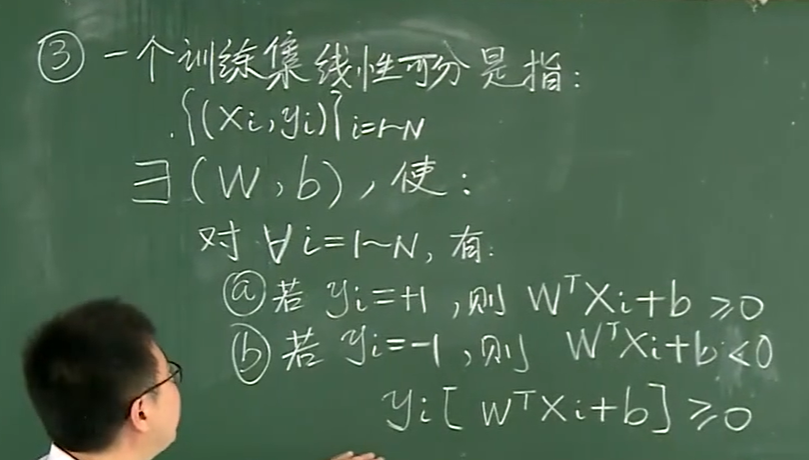 ③ 一个训练集线性可分是指:
{(Xi,yi)}i=1~N
∃(W,b),使:
对∀i=1~N,有:
ⓐ若 yi=+1,则 WᵀXi+b≥0
ⓑ若 yi=-1,则 WᵀXi+b<0
yi[WᵀXi+b]≥0